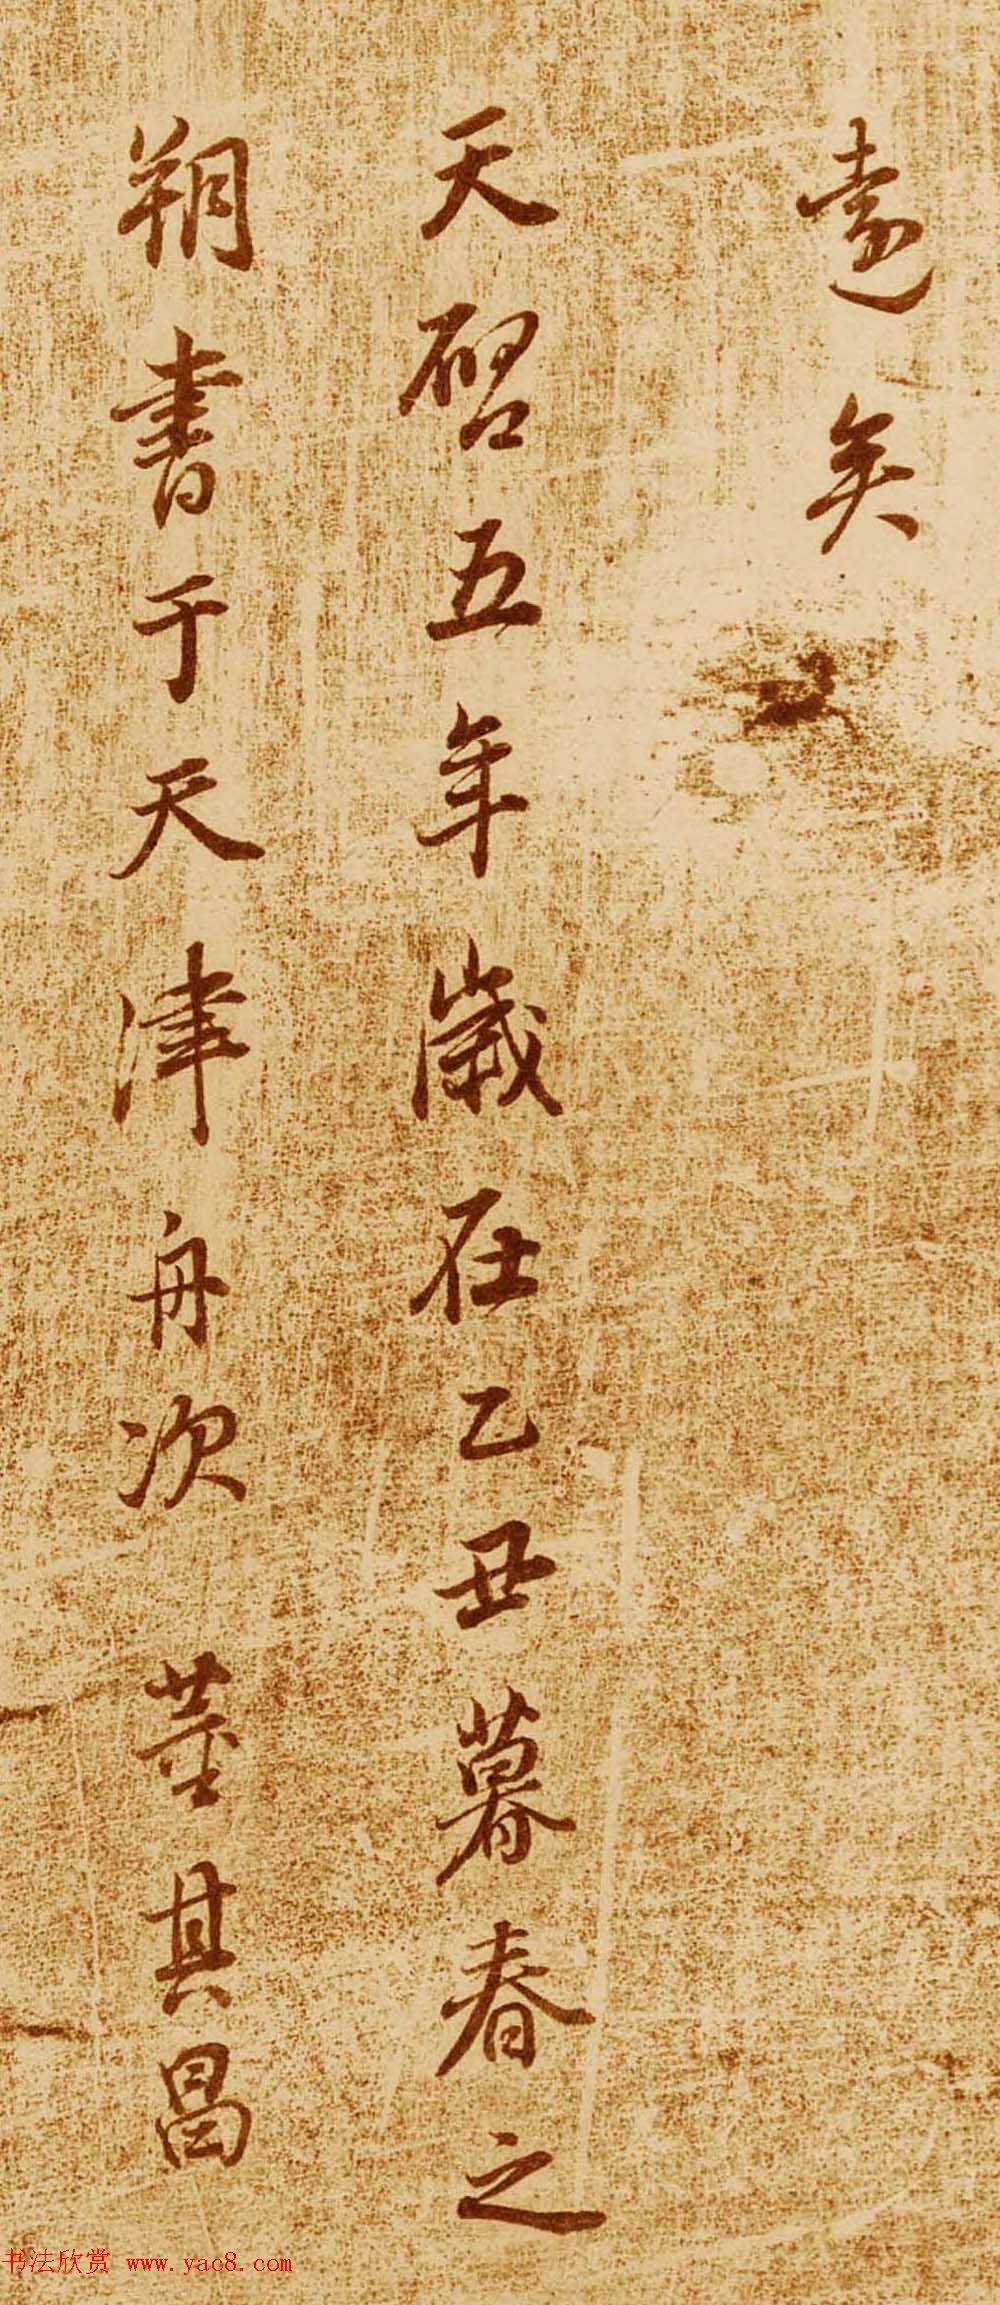 遠矣
天啓五年歲在乙丑暮春之
朔書于天津舟次 董其昌
书法欣赏 www.yac8.com